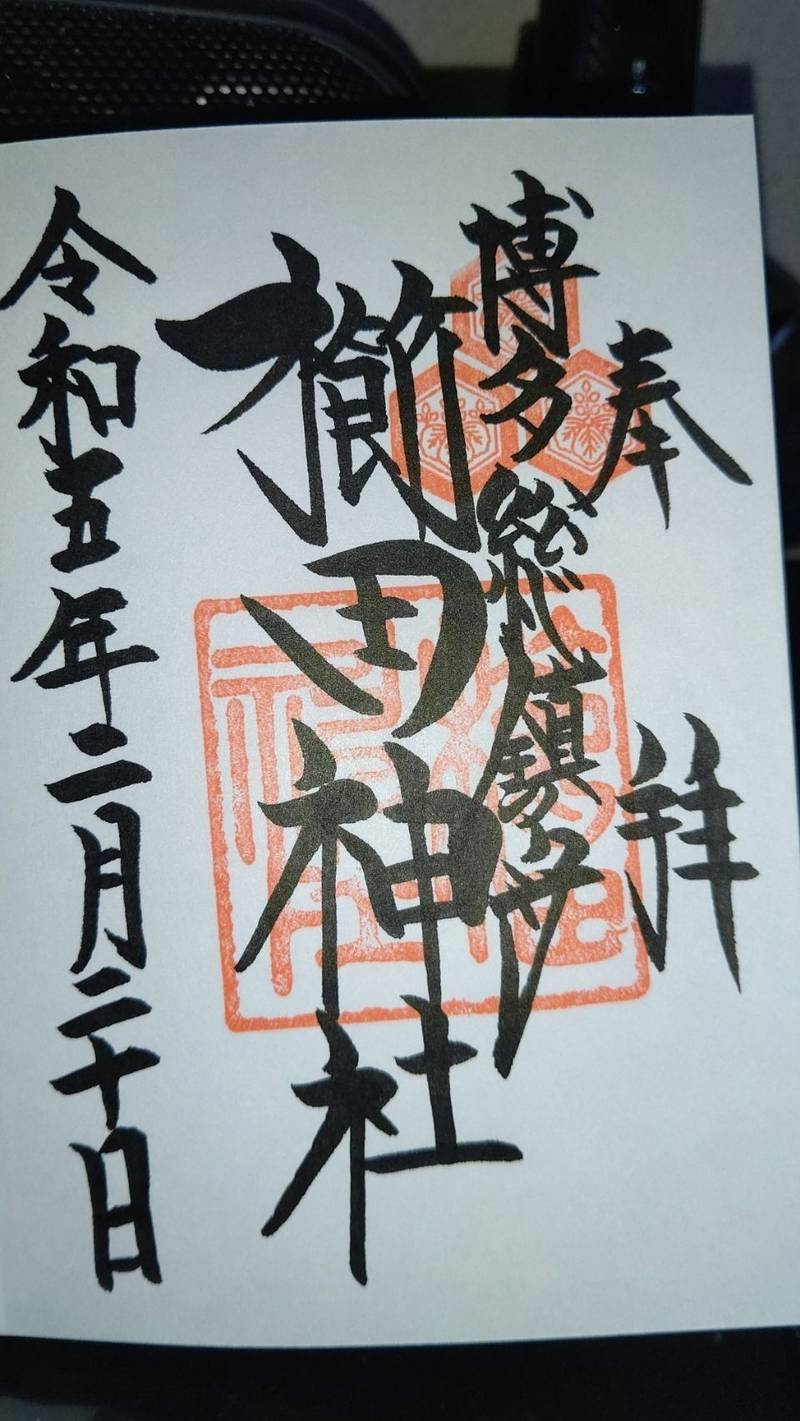 奉拝
博多総鎮守
櫛田神社
令和五年二月二十日